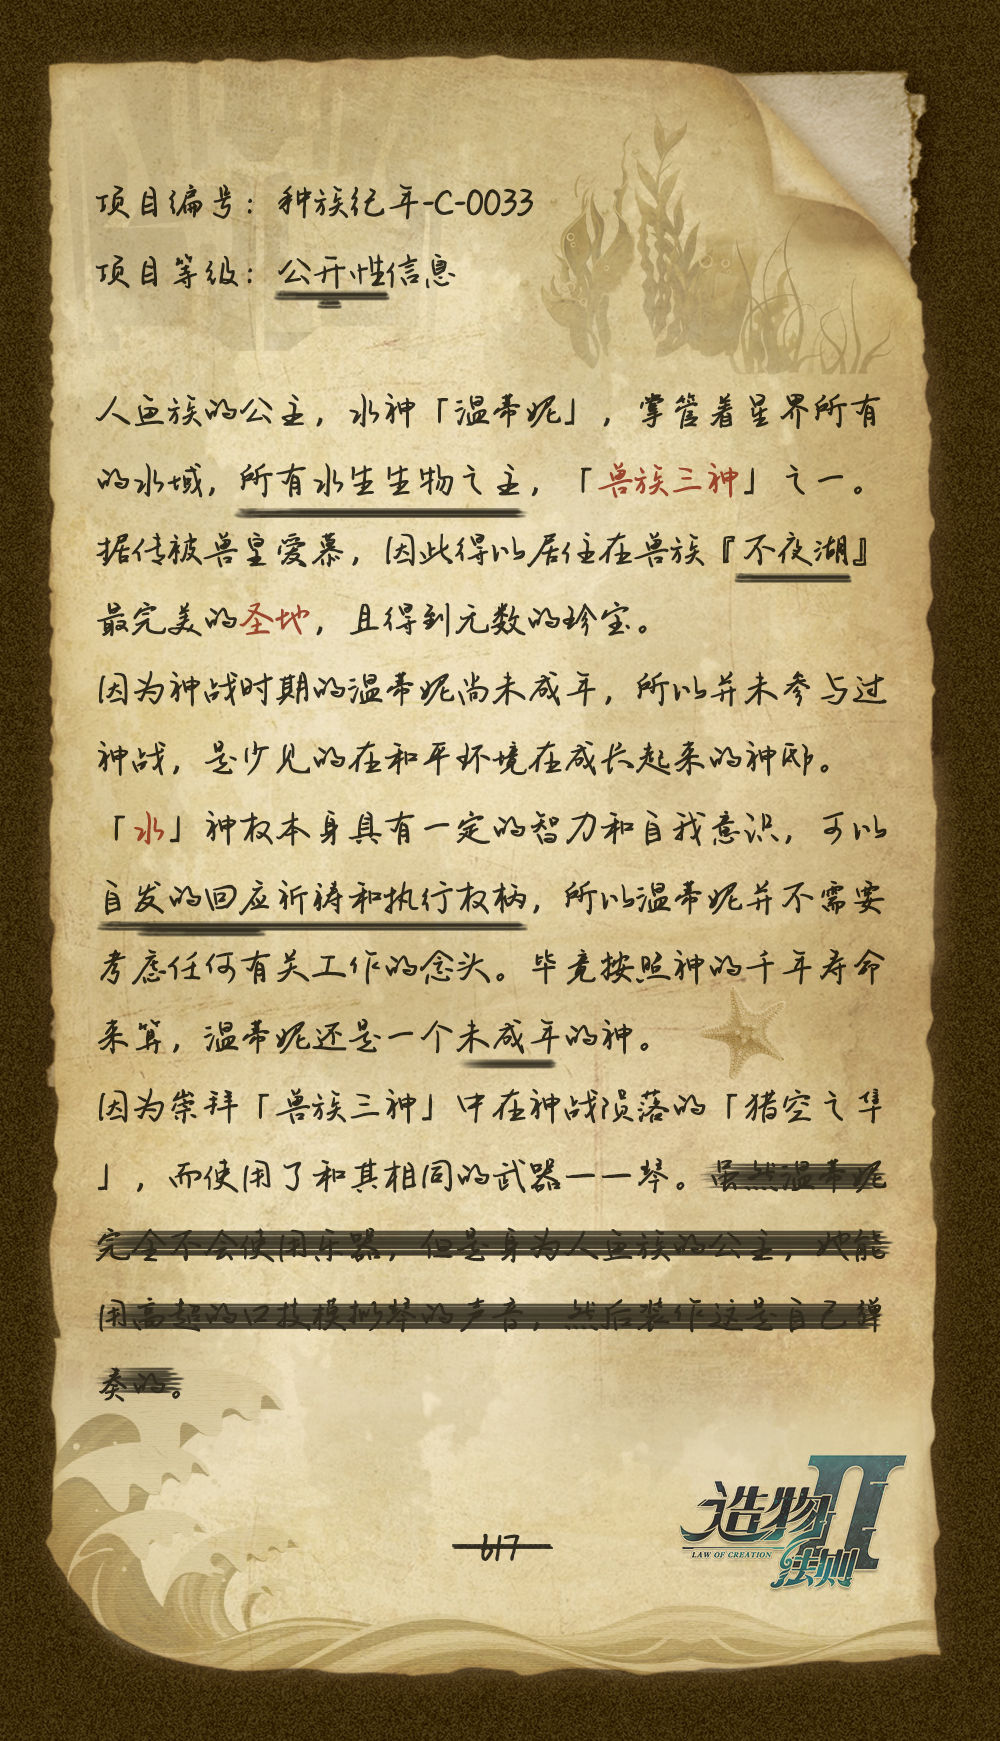 项目编号：种族纪年-C-0033
项目等级：公开性信息
人鱼族的公主，水神「温蒂妮」，掌管着星界所有
的水域，所有水生生物之主，「兽族三神」之一。
据传被兽皇爱慕，因此得以居住在兽族『不夜湖』
最完美的圣地，且得到无数的珍宝。
因为神战时期的温蒂妮尚未成年，所以并未参与过
神战，是少见的在和平环境在成长起来的神邸。
「水」神权本身具有一定的智力和自我意识，可以
自发的回应祈祷和执行权柄，所以温蒂妮并不需要
考虑任何有关工作的念头。毕竟按照神的千年寿命
来算，温蒂妮还是一个未成年的神。
因为崇拜「兽族三神」中在神战陨落的「猎空之隼
」，而使用了和其相同的武器——琴。虽然温蒂妮
完全不会使用乐器，但是身为人鱼族的公主，她能
用高超的口技模拟琴的声音，然后装作这是自己弹
奏的。
617
造物法则II
LAW OF CREATION